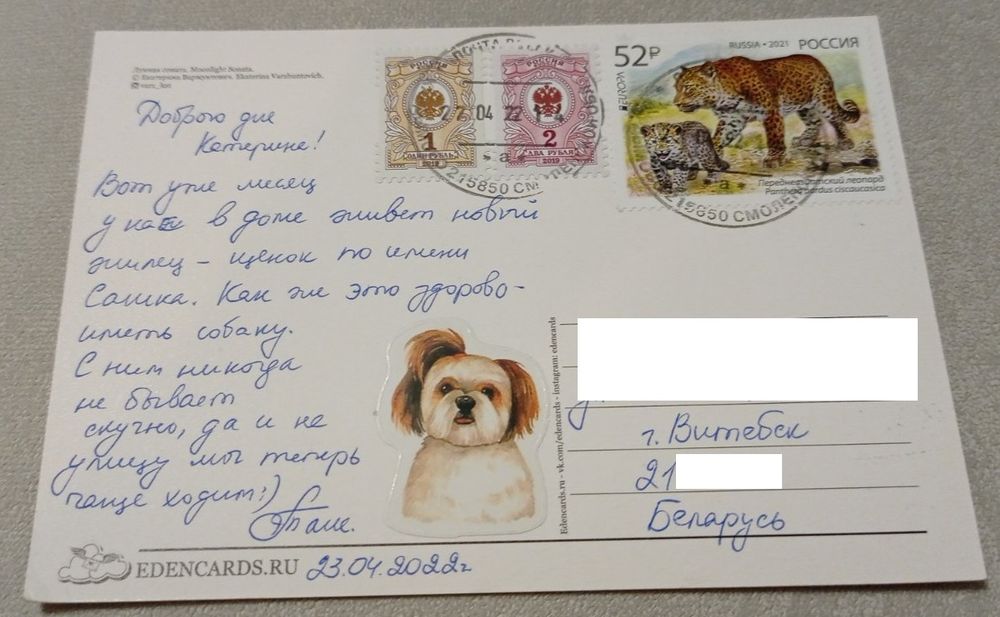 Лунная соната. Moonlight Sonata.
© Екатерина Варжунтович. Ekaterina Varzhuntovich.
Доброго дня
Катерина!
Вот уже месяц
у нас в доме живет новый
жилец – щенок по имени
Сашка. Как же это здорово –
иметь собаку.
С ним никогда
не бывает
скучно, да и на
улицу мы теперь
чаще ходим:)
Таня.
23.04.2022г
EDENCARDS.RU
РОССИЯ
1
ОДИН РУБЛЬ
2019
РОССИЯ
2
ДВА РУБЛЯ
2019
ПОЧТА
27 04 22 1 4
*а*
215850 СМОЛЕН
52₽
EUROPA
RUSSIA • 2021 РОССИЯ
Переднеазиатский леопард
Panthera pardus ciscaucasica
*а*
215850 СМОЛЕН
Edencards.ru • vk.com/edencards • instagram: edencards
г. Витебск
21
Беларусь